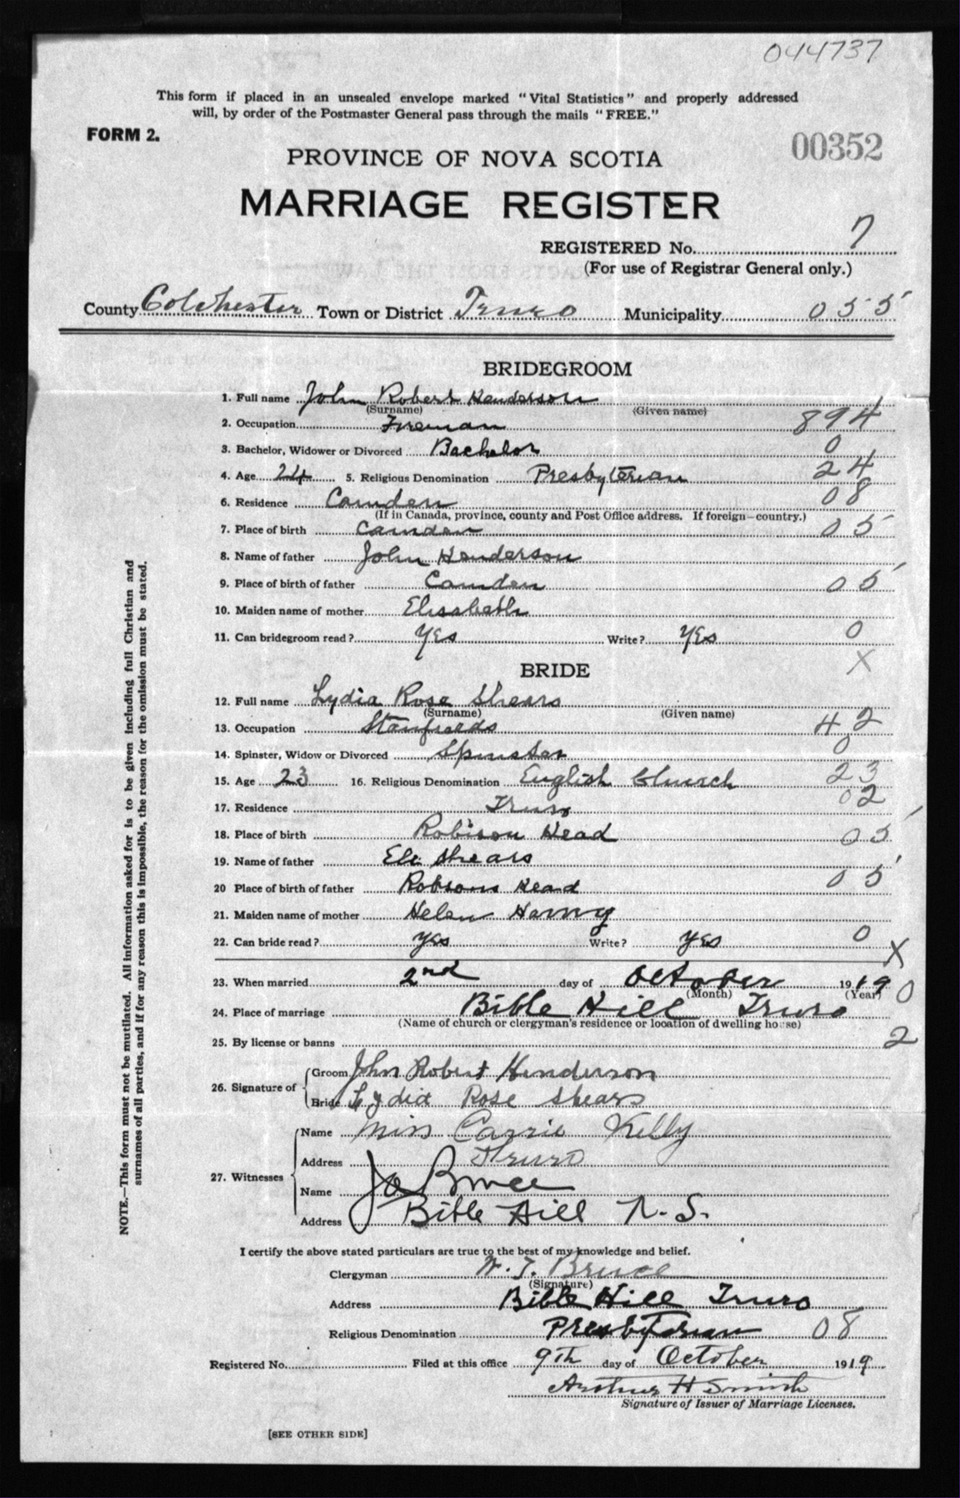 044737
This form if placed in an unsealed envelope marked "Vital Statistics" and properly addressed
will, by order of the Postmaster General pass through the mails "FREE."
FORM 2.
00352
PROVINCE OF NOVA SCOTIA
MARRIAGE REGISTER
REGISTERED No. 7
(For use of Registrar General only.)
County Colchester Town or District Truro Municipality 055
BRIDEGROOM
1. Full name John Robert Henderson
(Surname) (Given name)
2. Occupation Fireman 894
3. Bachelor, Widower or Divorced Bachelor 0
4. Age 24 5. Religious Denomination Presbyterian 24
6. Residence Camden 08
(If in Canada, province, county and Post Office address. If foreign—country.)
7. Place of birth Camden 05
8. Name of father John Henderson
9. Place of birth of father Camden 05
10. Maiden name of mother Elisabeth
11. Can bridegroom read? Yes Write? Yes 0
X
BRIDE
12. Full name Lydia Rose Shears
(Surname) (Given name)
13. Occupation Stanfields 42
14. Spinster, Widow or Divorced Spinster 0
15. Age 23 16. Religious Denomination English Church 23
17. Residence Truro 02
18. Place of birth Robison Head 05
19. Name of father Eli Shears
20 Place of birth of father Robsons Head 05
21. Maiden name of mother Helen
22. Can bride read? yes Write? yes 0
X
23. When married 2nd day of October 1919 0
(Month) (Year)
24. Place of marriage Bible Hill Truro
(Name of church or clergyman's residence or location of dwelling house)
25. By license or banns 2
26. Signature of Groom John Robert Henderson
Bride Lydia Rose Shears
27. Witnesses
Name Miss Carrie Kelly
Address Truro
Name Jo Bruce
Address Bible Hill N.S.
I certify the above stated particulars are true to the best of my knowledge and belief.
Clergyman W. T. Bruce
(Signature)
Address Bible Hill Truro
Religious Denomination Presbyterian 08
Registered No. Filed at this office 9th day of October 1919
Arthur H Smith
Signature of Issuer of Marriage Licenses.
[SEE OTHER SIDE]
NOTE.—This form must not be mutilated. All information asked for is to be given including full Christian and
surnames of all parties, and if for any reason this is impossible, the reason for the omission must be stated.